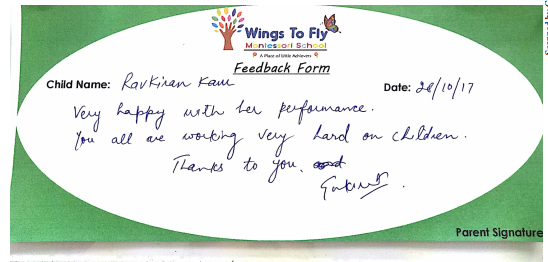 Wings To Fly
Montessori School
A Place of Little Achievers
Feedback Form
Child Name: Ravkiran Kaur Date: 28/10/17
Very happy with her performance.
You all are working very hard on children.
Thanks to you.
Parent Signature